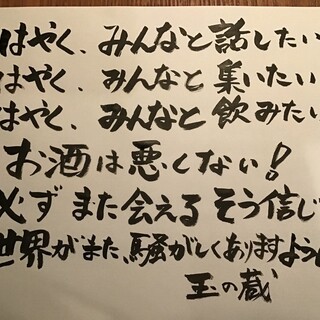 はやく、みんなと話したい
はやく、みんなと集いたい
はやく、みんなと飲みたい
お酒は悪くない!
必ずまた会えるそう信じ
世界がまた、騒がしくありますよう
玉の蔵